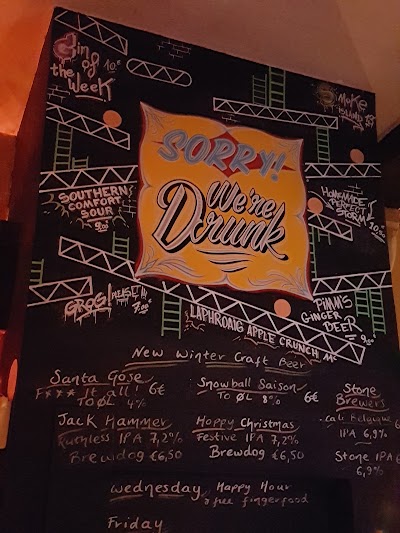 Gin of
the
Week
10.
Smoke
Island
SORRY!
We're
Drunk
Southern
Comfort
Sour
9.00
Homemade
Perfect
Storm
10.
Grog! Please!!!
7.00
Pimm's
Ginger
Beer
9.
Laphroaig Apple Crunch
New Winter Craft Beer
Santa Gose
F*** It All! 6€
TO ØL 4%
Snowball Saison
TO ØL 8% 6€
Stone
Brewers
Cali Belgique
IPA 6,9%
Stone IPA 6
6,9%
Jack Hammer
Ruthless IPA 7,2%
Brewdog €6,50
Hoppy Christmas
Festive IPA 7,2%
Brewdog €6,50
Wednesday Happy Hour
& free fingerfood
Friday